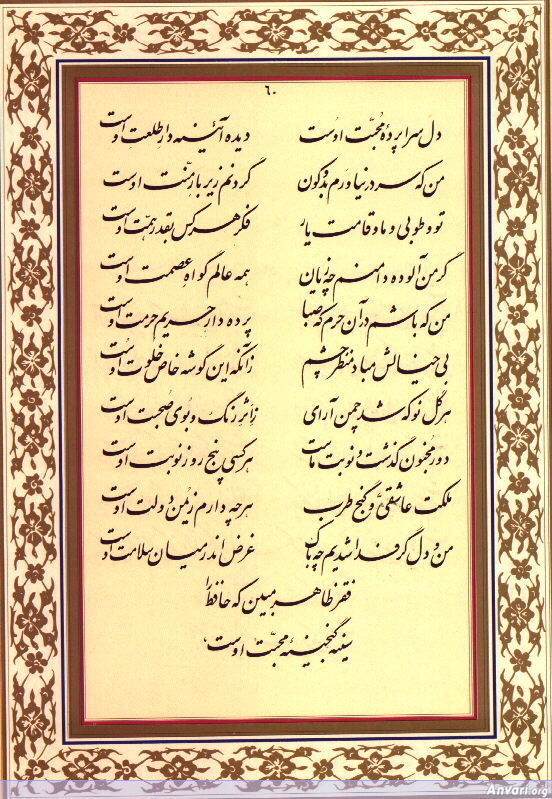 ٦٠
دل سراپردهٔ محبّت اوست دیده آئینه دار طلعت اوست
من که سر درنیاورم بدو کون گردنم زیر بار منّت اوست
تو و طوبی و ما و قامت یار فکر هر کس بقدر همّت اوست
گر من آلوده دامنم چه زیان همه عالم گواه عصمت اوست
من که باشم در آن حرم که صبا پرده دار حریم حرمت اوست
بی خیالش مباد منظر چشم زانکه این گوشه خاص خلوت اوست
هر گل نو که شد چمن آرای ز اثر رنگ و بوی صحبت اوست
دور مجنون گذشت و نوبت ماست هر کسی پنج روز نوبت اوست
ملکت عاشقی و گنج طرب هر چه دارم ز یمن دولت اوست
من و دل گر فدا شدیم چه باک غرض اندر میان سلامت اوست
فقر ظاهر مبین که حافظ را
سینه گنجینهٔ محبّت اوست
Anvari.org